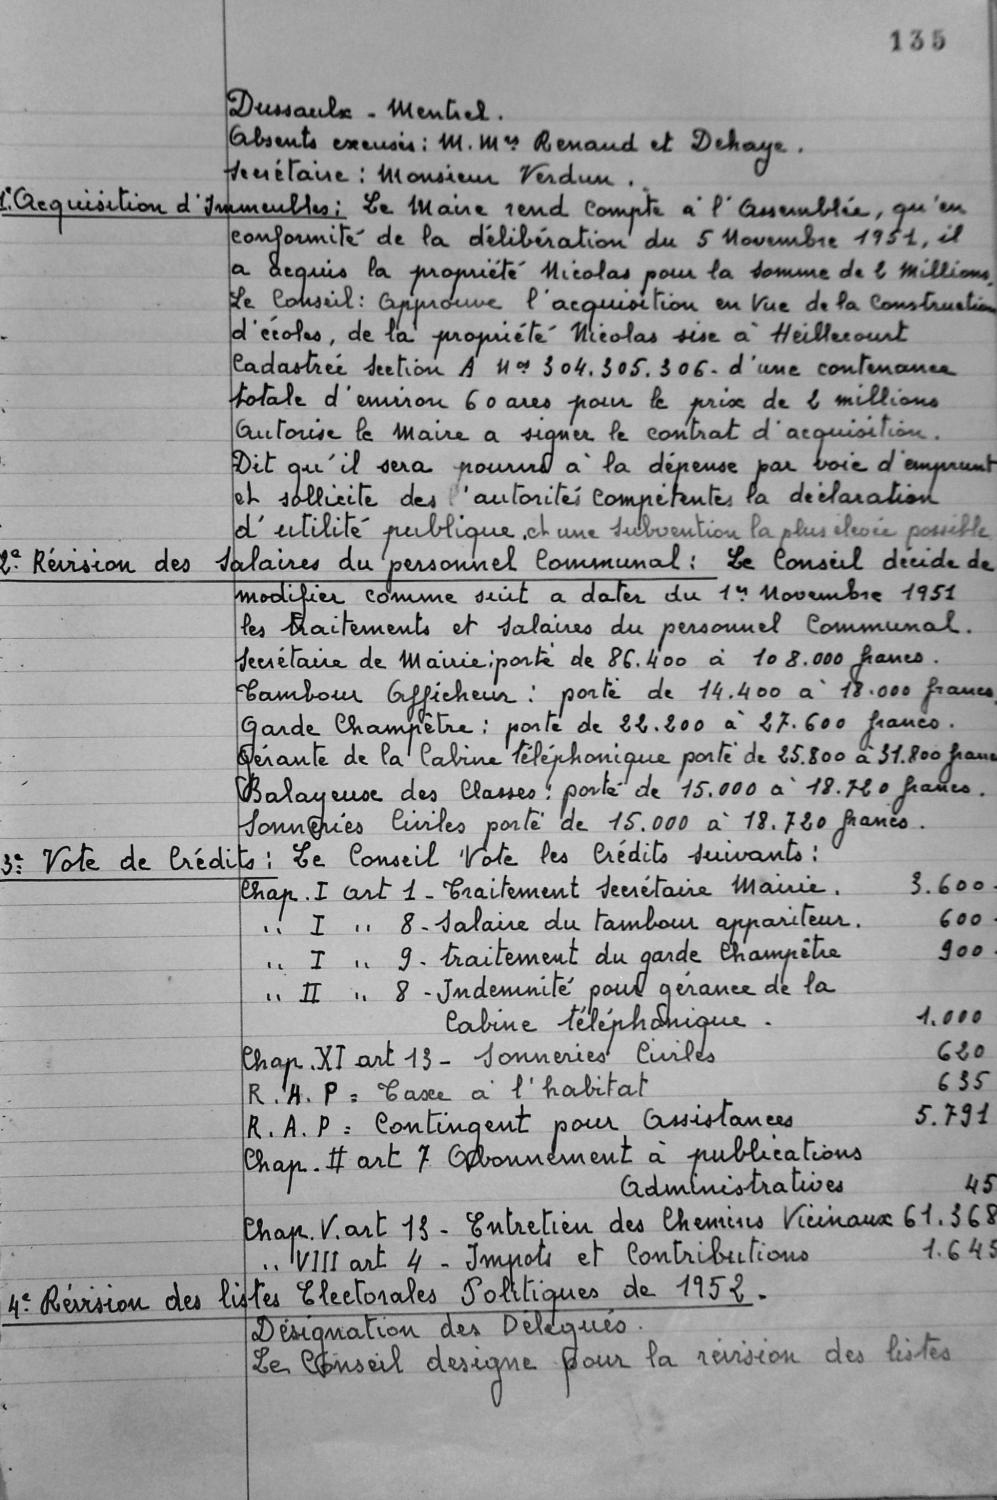 135
Dussaulx - Mentrel.
Absents excusés : M. Mrs Renaud et Dehaye.
Secrétaire : Monsieur Verdun.
1° Acquisition d'Immeubles : Le Maire rend compte à l'Assemblée, qu'en
conformité de la délibération du 5 Novembre 1951, il
a acquis la propriété Nicolas pour la somme de 2 millions.
Le Conseil : Approuve l'acquisition en vue de la construction
d'écoles, de la propriété Nicolas sise à Heillecourt
Cadastrée section A Nos 304.305.306. d'une contenance
totale d'environ 60 ares pour le prix de 2 millions
Autorise le Maire a signer le contrat d'acquisition.
Dit qu'il sera pourvu à la dépense par voie d'emprunt
et sollicite des l'autorités compétentes la déclaration
d'utilité publique, et une subvention la plus élevée possible
2e Révision des Salaires du personnel Communal : Le Conseil décide de
modifier comme suit a dater du 1er Novembre 1951
les traitements et salaires du personnel Communal.
Secrétaire de Mairie : porté de 86.400 à 108.000 francs.
Tambour Afficheur : porté de 14.400 à 18.000 francs.
Garde Champêtre : porté de 22.200 à 27.600 francs.
Gérante de la Cabine téléphonique porté de 25.800 à 31.800 francs
Balayeuse des Classes : porté de 15.000 à 18.720 francs.
Sonneries Civiles porté de 15.000 à 18.720 francs.
3e Vote de Crédits : Le Conseil Vote les Crédits suivants :
Chap. I art 1 - Traitement Secrétaire Mairie. 3.600.
" I " 8 - Salaire du tambour appariteur. 600.
" I " 9 - traitement du garde Champêtre 900.
" II " 8 - Indemnité pour gérance de la
Cabine téléphonique. 1.000
Chap. XI art 13 - Sonneries Civiles 620
R.A.P = Taxe à l'habitat 635
R.A.P = Contingent pour Assistances 5.791
Chap. II art 7 Abonnement à publications
Administratives 45
Chap. V. art 13 - Entretien des Chemins Vicinaux 61.368
" VIII art 4 - Impots et Contributions 1.645
4e Révision des listes Electorales Politiques de 1952.
Désignation des Délégués.
Le Conseil designe pour la révision des listes